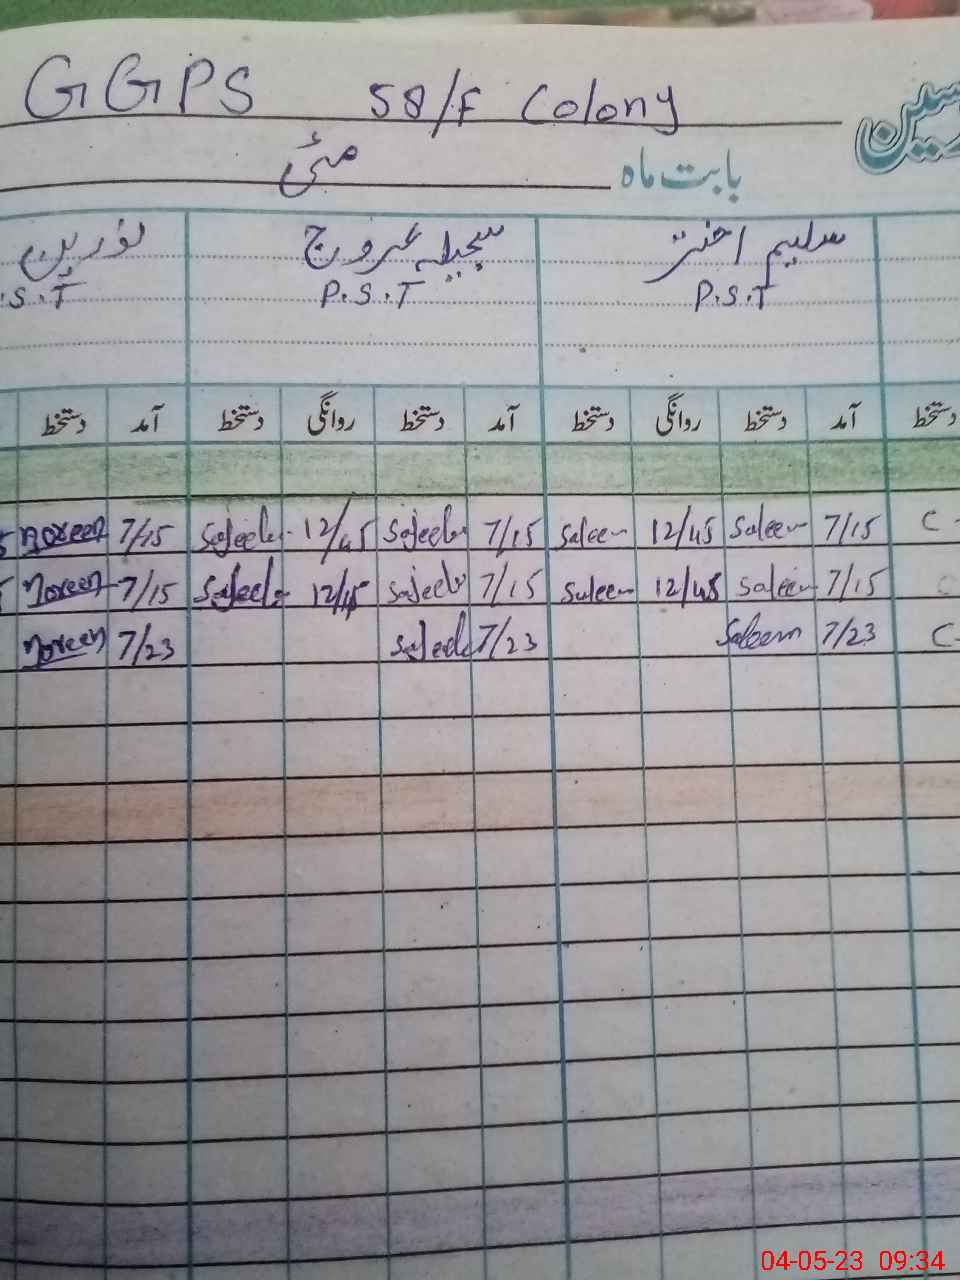 GGPS 58/F Colony
بابت ماہ مئی
سلیم اختر سجیلہ عروج نورین
P.S.T P.S.T .S.T
دستخط آمد دستخط روانگی دستخط آمد دستخط روانگی دستخط آمد دستخط
Noreen 7/15 Sajeela 12/45 Sajeela 7/15 Saleem 12/45 Saleem 7/15 C
Noreen 7/15 Sajeela 12/45 Sajeela 7/15 Saleem 12/45 Saleem 7/15 C
Noreen 7/23 Sajeela 7/23 Saleem 7/23 C
04-05-23 09:34